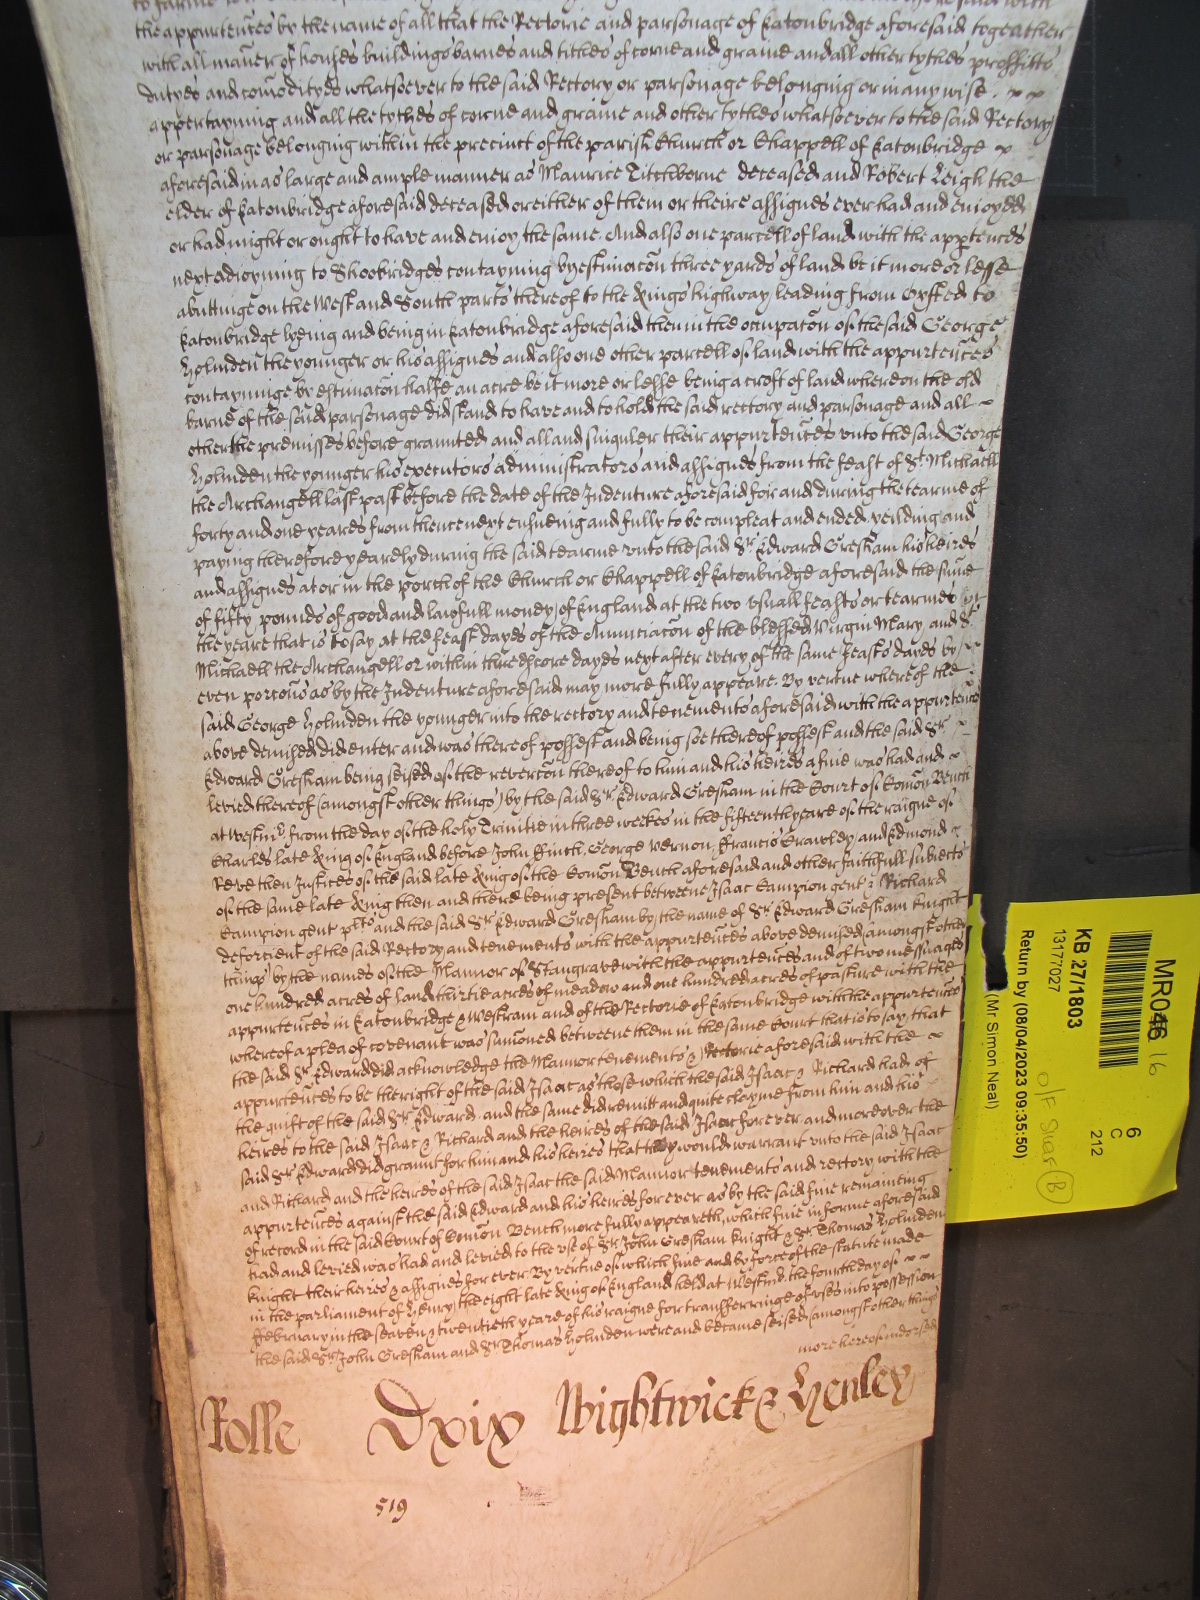 the appurtences by the name of all that the Rectorie and parsonage of Eatonbridge aforesaid together
with all maner of houses buildings barnes and tithes of corne and graine and all other tythes proffitts
dutyes and comodityes whatsoever to the said Rectory or parsonage belonging or in any wise
appertayning and all the tythes of corne and graine and other tythes whatsoever to the said Rectory
or parsonage belonging within the precinct of the parish Church or Chappell of Eatonbridge
aforesaid in as large and ample manner as Maurice Titchborne deceased and Robert Leigh the
elder of Eatonbridge aforesaid deceased or either of them or theire assignes ever had and enioyed
or had might or ought to have and enioy the same. And also one parcell of land with the apptences
next adioyning to Shoobridges contayning by estimacon three yards of land be it more or lesse
abuttinge on the West and South parts thereof to the Kings highway leading from Oxsted to
Eatonbridge lyeing and being in Eatonbridge aforesaid then in the occupacon of the said George
Holmden the younger or his assignes and also one other parcell of land with the appurtences
contayninge by estimacon halfe an acre be it more or lesse being a croft of land whereon the old
barne of the said parsonage did stand to have and to hold the said rectory and parsonage and all
other the premisses before graunted and all and singuler their appurtences unto the said George
Holmden the younger his executors administrators and assignes from the feast of St. Michaell
the Archangell last past before the date of the Indenture aforesaid for and during the tearme of
forty and one yeares from thence next ensueing and fully to be compleat and ended yeilding and
paying therefore yearely during the said tearme unto the said Sr. Edward Gresham his heires
and assignes at or in the porch of the Church or Chappell of Eatonbridge aforesaid the sume
of fifty pounds of good and lawfull money of England at the two usuall feasts or tearmes of
the yeare that is to say at the feast dayes of the Anunciacon of the blessed Virgin Mary and St.
Michaell the Archangell or within threescore dayes next after every of the same feasts dayes by
even porcons as by the Indenture aforesaid may more fully appeare. By vertue whereof the
said George Holmden the younger into the rectory and tenements aforesaid with the appurtences
above demised did enter and was thereof possest and being soe thereof possest and the said Sr.
Edward Gresham being seised of the revercon thereof to him and his heires a fine was had and
levied thereof (amongst other things) by the said Sr. Edward Gresham in the Court of Comon Bench
at Westmr. from the day of the holy Trinitie in three weekes in the fifteenth yeare of the raigne of
Charles late King of England before John Ffinch, George Vernon, Ffrancis Crawley, and Edmond
Reve then Justices of the said late King of the Comon Bench aforesaid and other faithfull subiects
of the same late King then and there being present betweene Isaac Campion gent & Richard
Campion gent plts and the said Sr. Edward Gresham by the name of Sr. Edward Gresham Knight
deforcient of the said Rectory and tenements with the appurtences above demised amongst other
things by the names of the Mannor of Stangrave with the appurtences and of two messuages
one hundred acres of land thirtie acres of meadow and one hundred acres of pasture with the
appurtences in Eatonbridge & Westram and of the Rectorie of Eatonbridge with the appurtences
whereof a plea of covenant was sumoned betweene them in the same Court that is to say that
the said Sr. Edward did acknowledge the Mannor tenements & Rectorie aforesaid with the
appurtences to be the right of the said Isaac as those which the said Isaac & Richard had of
the guift of the said Sr. Edward and the same did remitt and quite clayme from him and his
heires to the said Isaac & Richard and the heires of the said Isaac for ever and moreover the
said Sr. Edward did graunt for him and his heires that they would warrant unto the said Isaac
and Richard and the heires of the said Isaac the said Mannor tenements and rectory with the
appurtences against the said Edward and his heires for ever as by the said fine remaining
of record in the said Court of Comon Bench more fully appeareth, which fine in forme aforesaid
had and levied was had and levied to the use of Sr. John Gresham Knight & Sr. Thomas Holmden
Knight their heires & assignes for ever. By vertue of which fine and by force of the statute made
in the parliament of Henry the eight late King of England held at Westmr. the fourth day of
Ffebruary in the seaven & twentieth yeare of his raigne for transferringe of uses into possession
the said Sr. John Gresham and Sr. Thomas Holmden were and became seised (amongst other things
more hereof indorsed
Rolle Dxix Wightwick & Henley
519
MR046 16
6
C
212
KB 27/1803
13177027
O/F Size B
Return by (08/04/2023 09:35:50)
(Mr Simon Neal)